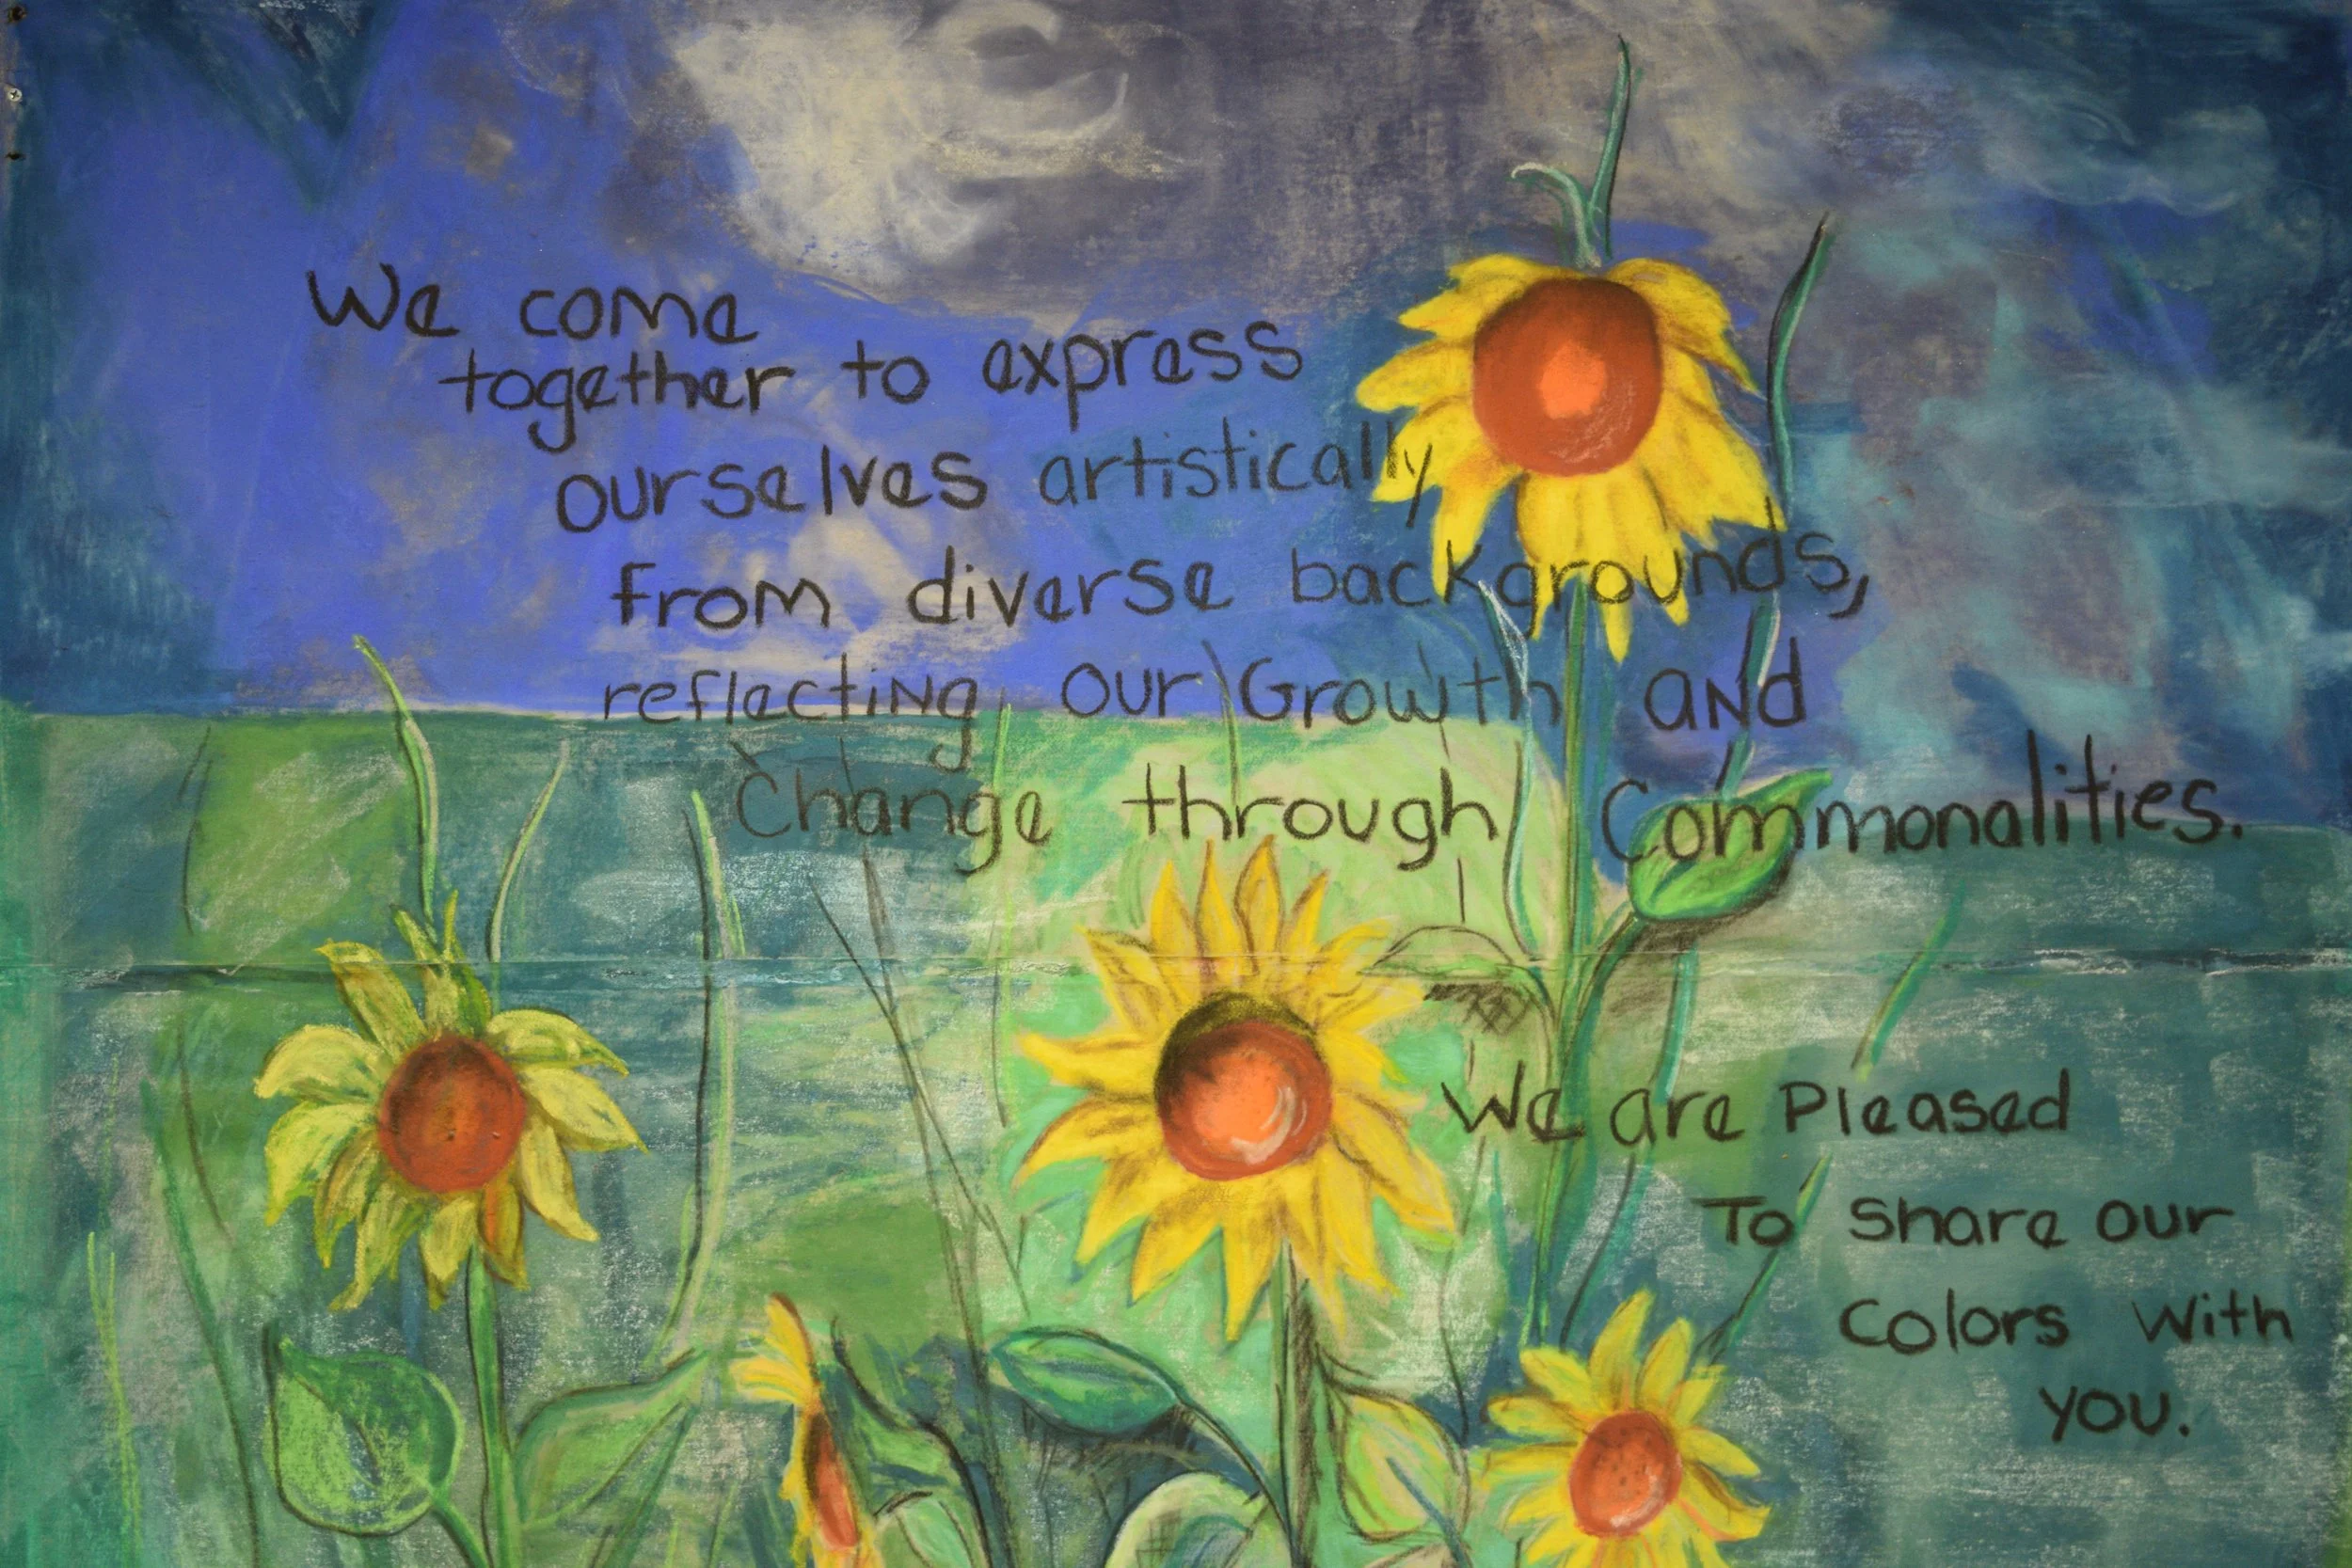 We come
together to express
ourselves artistically
from diverse backgrounds,
reflecting our Growth and
Change through Commonalities.
We are Pleased
To Share our
Colors With
you.